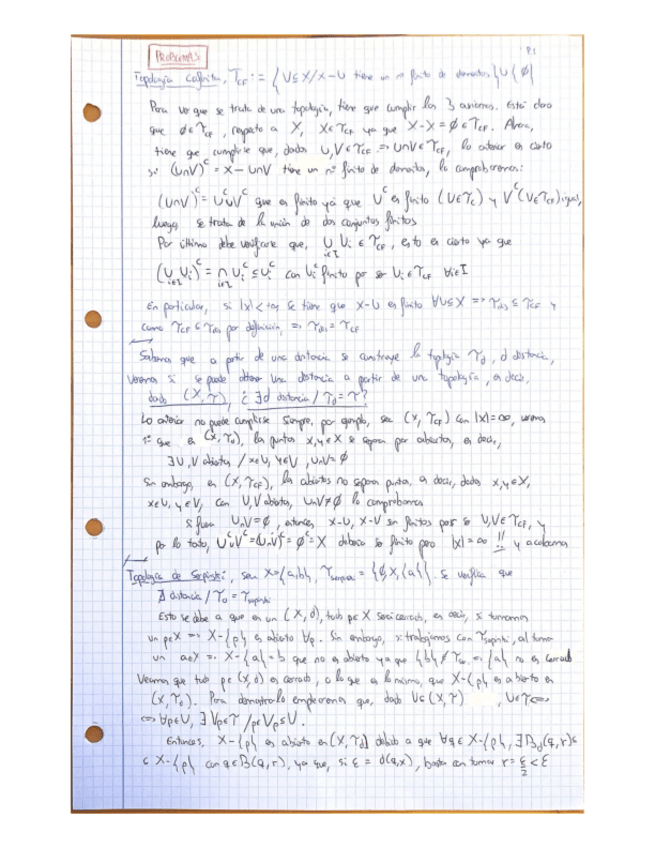 PROBLEMAS
P.1
Topología Cofinita, τ_CF := {U⊆X / X-U tiene un nº finito de elementos}∪{∅}
Para ver que se trata de una topología, tiene que cumplir los 3 axiomas. Está claro
que ∅∈τ_CF, respecto a X, X∈τ_CF ya que X-X=∅∈τ_CF. Ahora,
tiene que cumplirse que, dados U,V∈τ_CF => U∩V∈τ_CF, lo anterior es cierto
si (U∩V)^c = X-U∩V tiene un nº finito de elementos, lo comprobaremos:
(U∩V)^c = U^c∪V^c que es finito ya que U^c es finito (U∈τ_C) y V^c (V∈τ_CF) igual,
luego se trata de la unión de dos conjuntos finitos
Por último debe verificarse que, ∪_{i∈I} U_i ∈ τ_CF, esto es cierto ya que
(∪_{i∈I} U_i)^c = ∩_{i∈I} U_i^c ⊆ U_i^c con U_i^c finito por ser U_i∈τ_CF ∀i∈I
En particular, si |X|<+∞ se tiene que X-U es finito ∀U⊆X => τ_dis ⊆ τ_CF y
como τ_CF ⊆ τ_dis por definición, => τ_dis = τ_CF
Sabemos que a partir de una distancia se construye la topología τ_d, d distancia,
Veremos si se puede obtener una distancia a partir de una topología, es decir,
dado (X,τ), ¿∃d distancia / τ_d=τ?
Lo anterior no puede cumplirse siempre, por ejemplo, sea (X,τ_CF) con |X|=∞, veremos
1º que en (X,τ_d), los puntos x,y∈X se separan por abiertos, es decir,
∃U,V abiertos / x∈U, y∈V, U∩V=∅
Sin embargo, en (X,τ_CF), los abiertos no separan puntos, es decir, dados x,y∈X,
x∈U, y∈V, con U,V abiertos, U∩V≠∅ lo comprobamos
si fuera U∩V=∅, entonces X-U, X-V son finitos por ser U,V∈τ_CF, y
por lo tanto, U^c∪V^c=(U∩V)^c=∅^c=X debería ser finito pero |X|=∞ !! y acabamos
Topología de Sierpinski, sea X={a,b}, τ_sierpinski = {∅,X,{a}}. Se verifica que
∄ distancia / τ_d = τ_sierpinski
Esto se debe a que en un (X,d), todo p∈X será cerrado, es decir, si tomamos
un p∈X => X-{p} es abierto ∀p. Sin embargo, si trabajamos con τ_sierpinski, al tomar
un a∈X => X-{a}=b que no es abierto ya que {b}∉τ => {a} no es cerrado
Veamos que todo p∈(X,d) es cerrado, o lo que es lo mismo, que X-{p} es abierto en
(X,τ_d). Para demostrarlo emplearemos que, dado U⊆(X,τ) , U∈τ <=>
<=> ∀p∈U, ∃V_p∈τ / p∈V_p⊆U.
Entonces, X-{p} es abierto en (X,τ_d) debido a que ∀q∈X-{p}, ∃B_d(q,r)⊆
⊆ X-{p} con q∈B(q,r), ya que, si ε = d(q,x), basta con tomar r=ε/2<ε